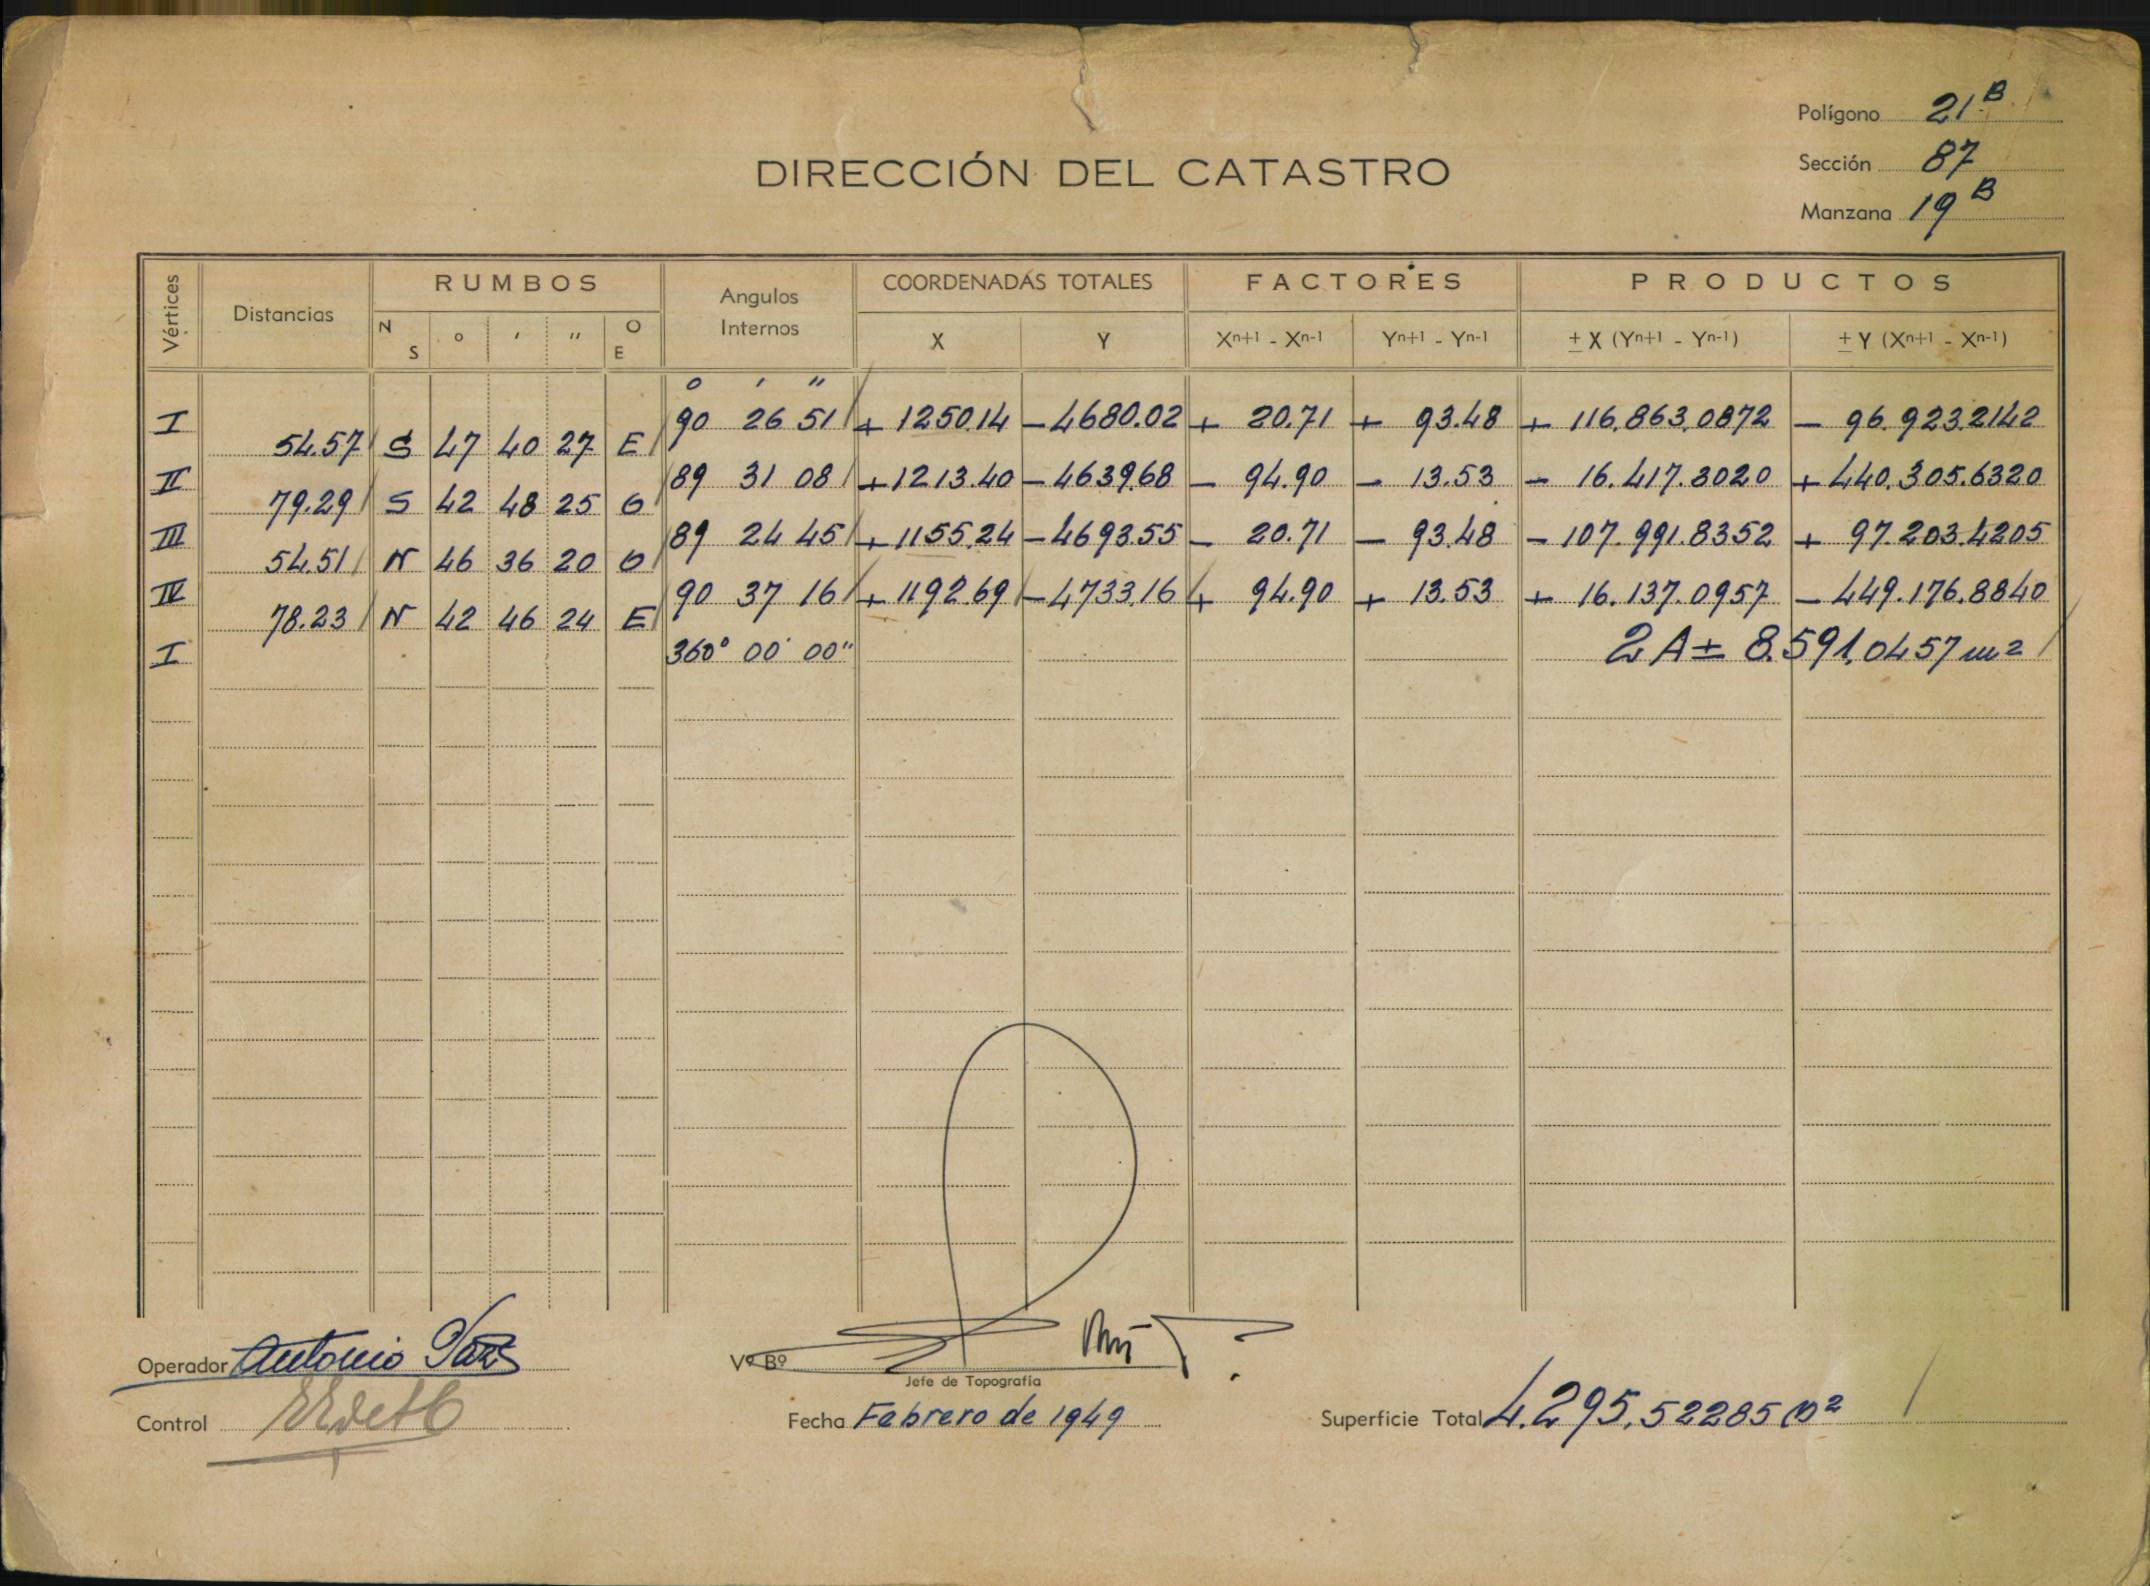 Polígono 21 B
DIRECCIÓN DEL CATASTRO
Sección 87
Manzana 19 B
Vértices Distancias RUMBOS Angulos Internos COORDENADAS TOTALES FACTORES PRODUCTOS
N S ° ' " O E X Y Xn+1 - Xn-1 Yn+1 - Yn-1 ± X (Yn+1 - Yn-1) ± Y (Xn+1 - Xn-1)
° ' "
I 90 26 51 + 1250.14 - 4680.02 + 20.71 + 93.48 + 116.863.0872 - 96.923.2142
54.57 S 47 40 27 E
II 89 31 08 + 1213.40 - 4639.68 - 94.90 - 13.53 - 16.417.3020 + 440.305.6320
79.29 S 42 48 25 O
III 89 24 45 + 1155.24 - 4693.55 - 20.71 - 93.48 - 107.991.8352 + 97.203.4205
54.51 N 46 36 20 O
IV 90 37 16 + 1192.69 - 4733.16 + 94.90 + 13.53 + 16.137.0957 - 449.176.8840
78.23 N 42 46 24 E
I 360° 00' 00" 2 A ± 8.591.0457 m2
Operador Antonio
Vº Bº
Jefe de Topografía
Control
Fecha Febrero de 1949
Superficie Total 4.295.52285 m2